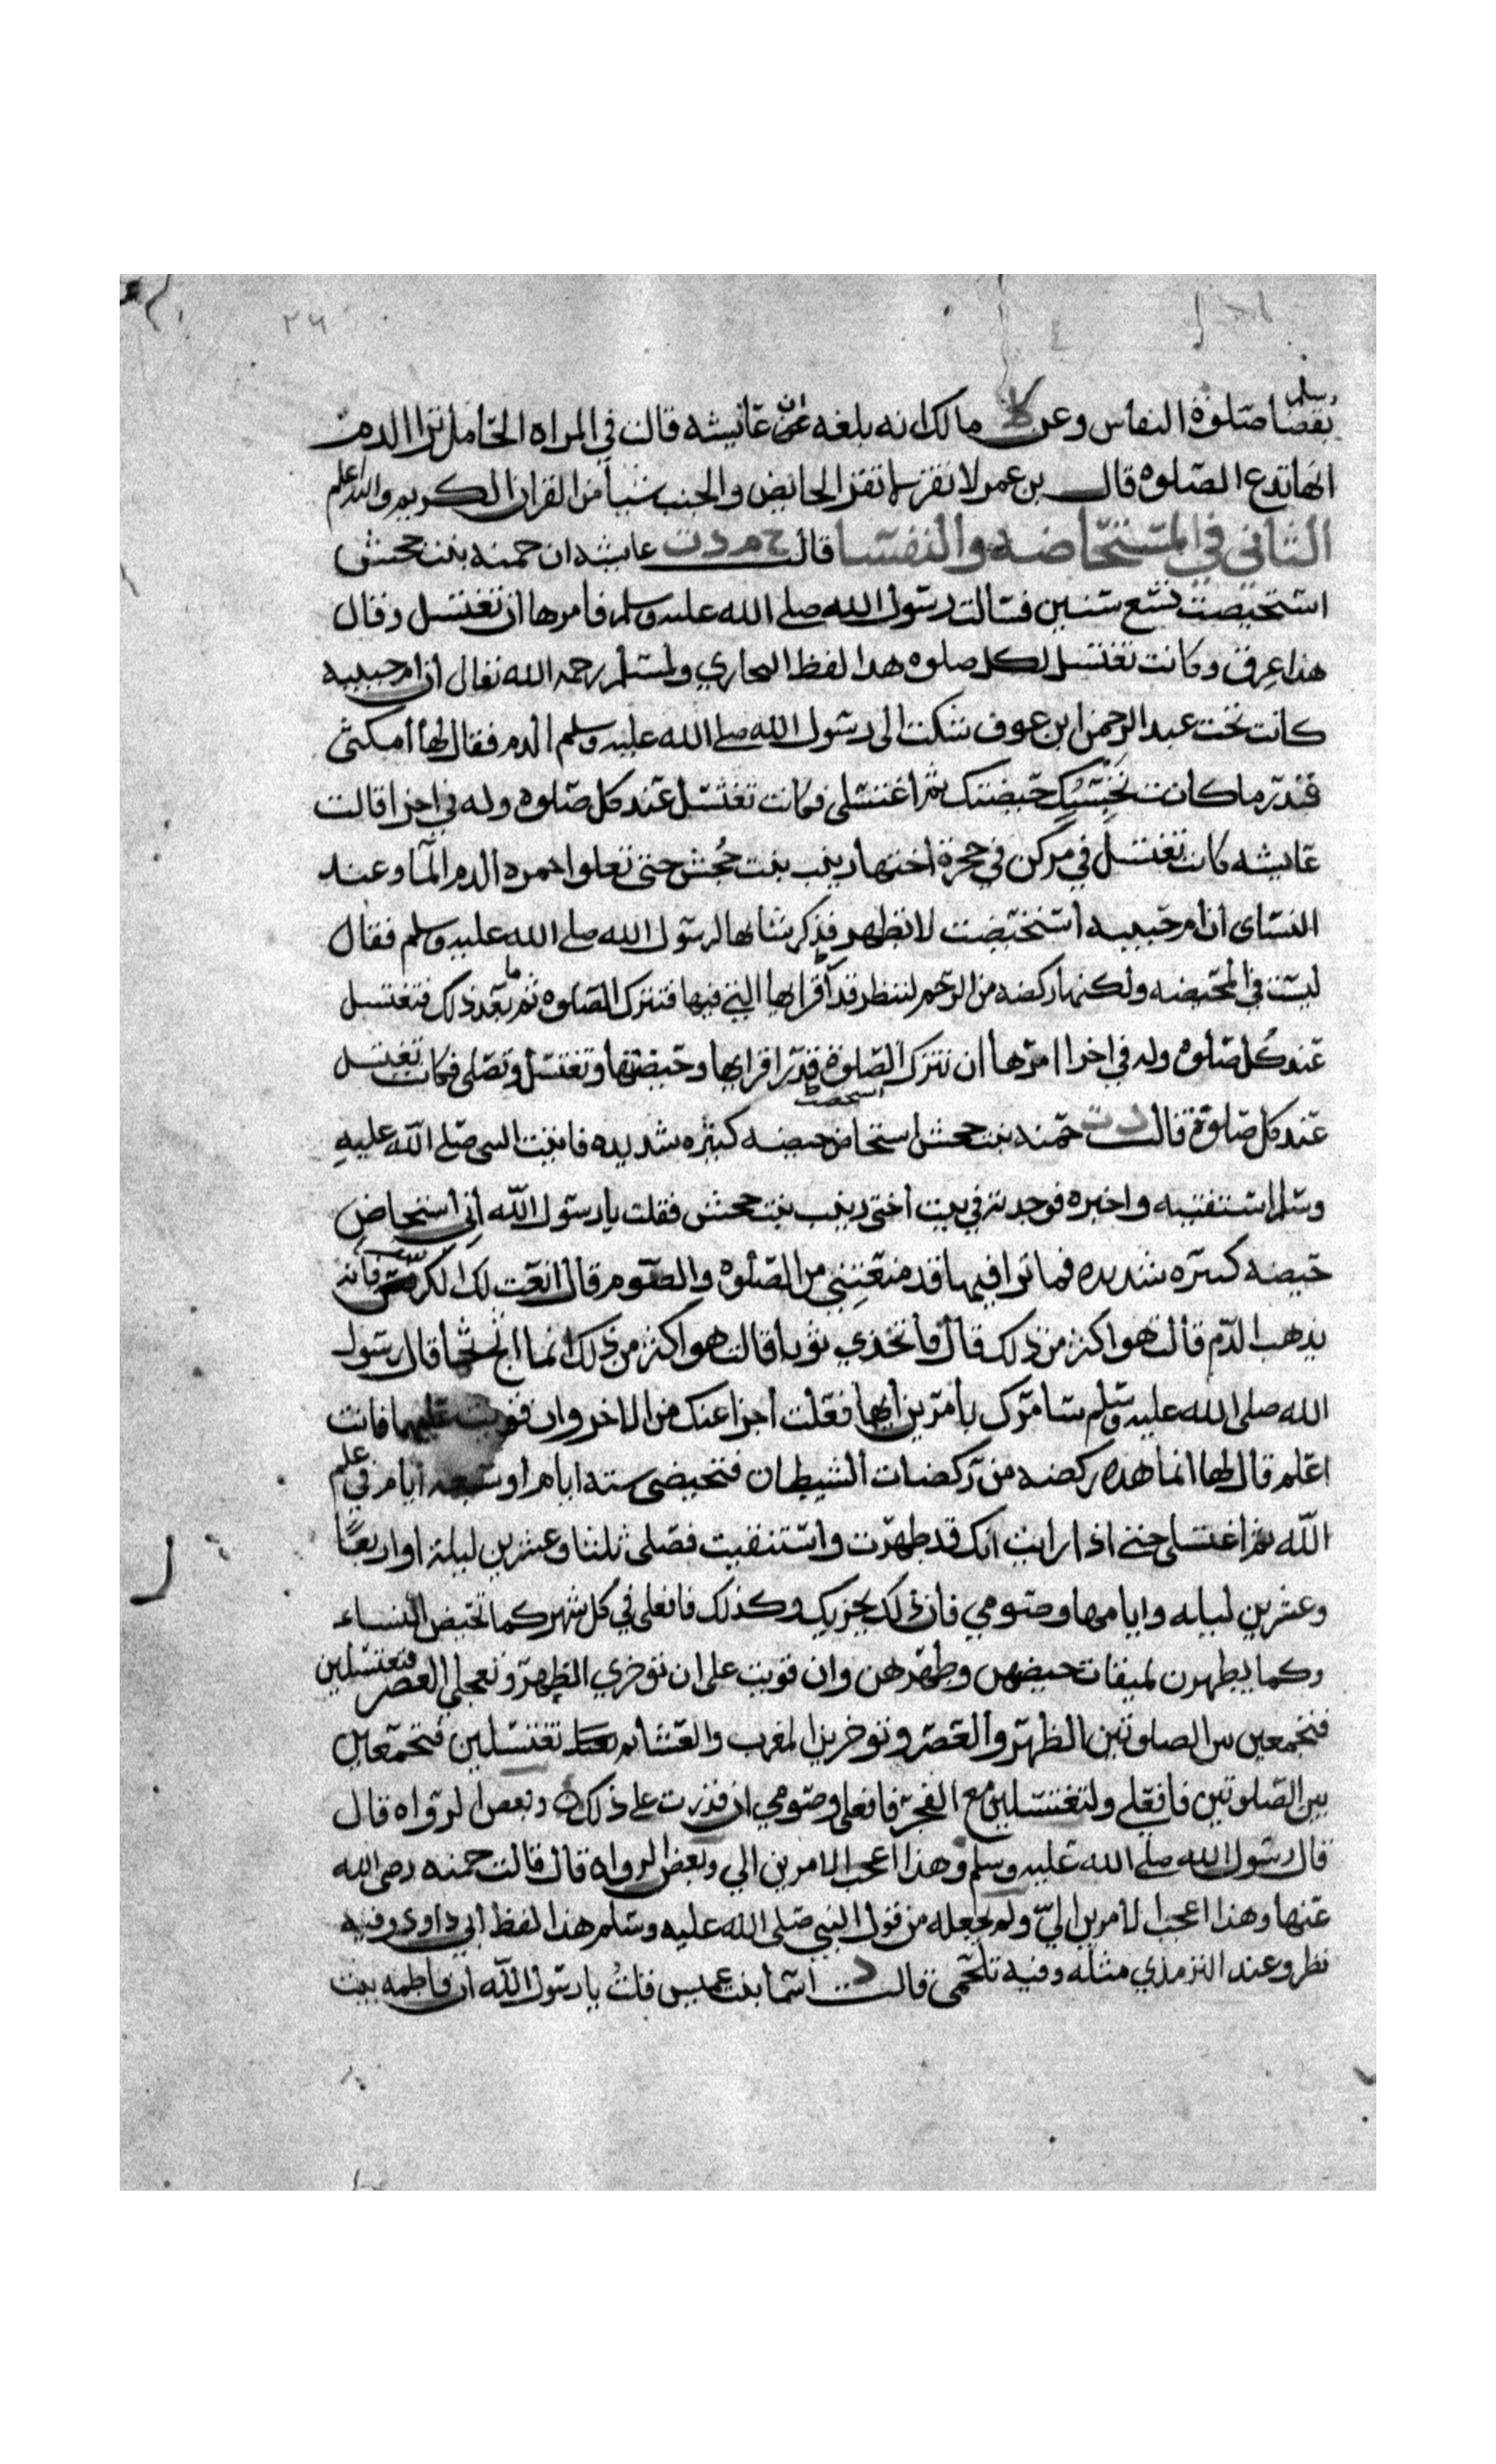 ٢٦
وسلم
بقضا صلوة النفاس وعن ط مالك انه بلغه ان عائشه قالت في المراه الحامل ترا الدم
انها تدع الصلوه قال بن عمر لا تقر الحايض والجنب شيا من القران الكريم والله اعلم
الثاني في المستحاضه والنفسا قالت خ م د ت عايشه ان حمنه بنت جحش
استحيضت تسع سنين فسالت رسول الله صلى الله عليه وسلم فامرها ان تغتسل وقال
هذا عرق وكانت تغتسل لكل صلوه هدا لفظ البحاري ولمسلم رحمه الله تعالى ان ام حبيبه
كانت تحت عبد الرحمن ابن عوف شكت الى رسول الله صلى الله عليه وسلم الدم فقال لها امكثى
قدر ما كانت تحبسك حيضتك ثم اغتسلى فكانت تغتسل عند كل صلوه وله في اخرا قالت
عايشه كانت تغتسل في مركن في حجرة اختها زينب بنت جحش حتى تعلوا حمره الدم الما وعند
النساى ان ام حبيبه استحيضت لا تطهر فذكر شانها لرسول الله صلى الله عليه وسلم فقال
ليست في الحيضه ولكنها ركضه من الرحم لتنظر قدر اقرايها التي فيها فتترك الصلوه ثم ما بعد ذلك فتغتسل
عند كل صلوه وله في اخرا امرها ان تترك الصلوة قدر اقرايها وحيضتها وتغتسل وتصلى فكانت تغتسل
عند كل صلوة قالت د ت حمنه بنت جحش استحاض حيضه كثيره شديده فاتيت النبي صلى الله عليه
وسلم استفتيه واخبره فوجدته في بيت اختى زينب بنت جحش فقلت يا رسول الله اني استحاض
حيضه كبيره شديده فما ترا فيها قد منعتني من الصلوه والصوم قال انعت لك الكرسف فانه
يذهب الدم قالت هو اكثر من ذلك قال فاتخذي ثوبا قالت هو اكثر من ذلك انما اثج ثجا قال رسول
الله صلى الله عليه وسلم سامرك بامرين ايها فعلت اجزا عنك من الاخر وان قويت عليهما فانت
اعلم قال لها انما هده ركضه من ركضات الشيطان فتحيضي سته ايام او سبعه ايام في علم
الله ثم اغتسلى حتى اذا رايت انك قد طهرت واستنقيت فصلى ثلثا وعشرين ليلة او اربعا
وعشرين ليله وايامها وصومي فان ذلك يجزيك وكذلك فافعلي في كل شهر كما تحيض النساء
وكما يطهرن لميقات حيضهن وطهرهن وان قويت على ان توخري الظهر وتعجلي العصر فتغتسلين
فتجمعين بين الصلوتين الظهر والعصر وتوخرين المغرب والعشا ثم تغتسلين فتجمعين
بين الصلوتين فافعلي ولتغتسلين مع الفجر فافعلى وصومي ان قدرت على ذلك وبعض الرواه قال
قال رسول الله صلى الله عليه وسلم وهذا اعجب الامرين الي وبعض الرواه قال قالت حمنه رضى الله
عنها وهذا اعجب الامرين الي ولم يجعله من قول النبي صلى الله عليه وسلم هذا لفظ ابي داود وفيه
نظر وعند الترمذي مثله وفيه تلجمى قالت د اسما بنت عميس قلت يا رسول الله ان فاطمه بنت